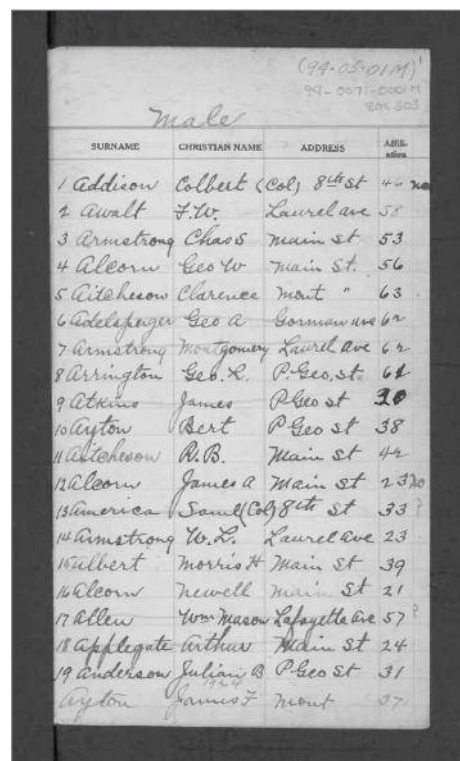 (94-05-01M) 1
94-0071-000 M
Male
SURNAME CHRISTIAN NAME ADDRESS Affili-ation
1 Addison Colbert (Col) 8th St 46
2 Awalt F.W. Laurel ave 58
3 Armstrong Chas S Main St 53
4 Alcorn Geo W Main St. 56
5 Aitcheson Clarence Mont " 63
6 Adelsperger Geo A Gorman ave 62
7 Armstrong Montgomery Laurel Ave 62
8 Arrington Geo. L. P. Geo. St. 61
9 Atkins James P Geo St
10 Ayton Bert P Geo St 38
11 Aitcheson R.B. Main St 42
12 Alcorn James A Main St 23 no
13 America Saml (Col) 8th St 33 ?
14 Armstrong W.L. Laurel Ave 23
15 Albert Morris H Main St 39
16 Alcorn Newell Main St 21
17 Allen Wm Mason Lafayette Ave 57 ?
18 Applegate Arthur Main St 24
19 Anderson Julian B P Geo St 31
1924
Ayton James F Mont 37